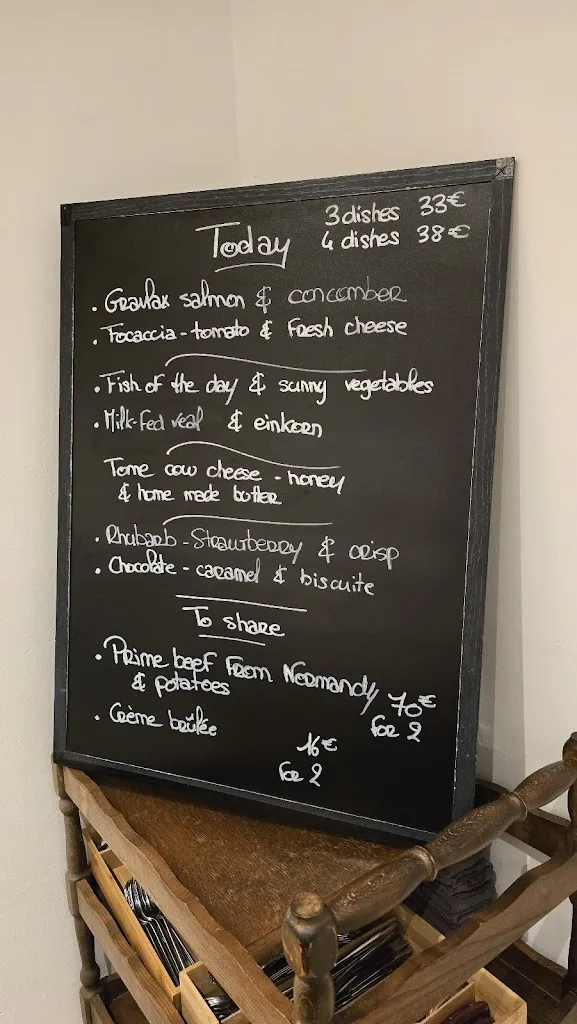 Today
3 dishes 33€
4 dishes 38€
• Gravlax salmon & concomber
• Focaccia - tomato & Fresh cheese
• Fish of the day & sunny vegetables
• Milk-Fed veal & einkorn
Tome cow cheese - honey
& home made butter
• Rhubarb - Strawberry & crisp
• Chocolate - caramel & biscuite
To share
• Prime beef From Normandy
& potatoes
70€
for 2
• Crème brûlée
16€
for 2